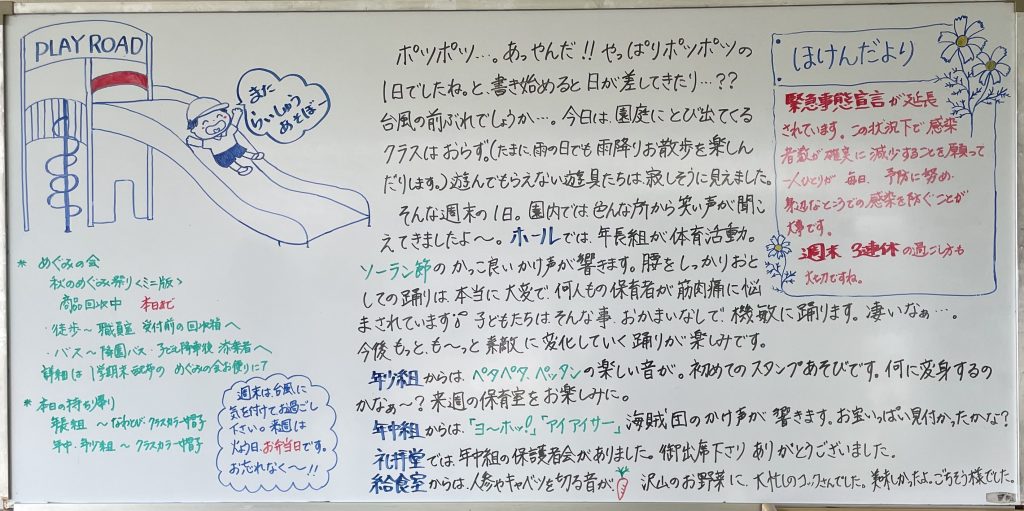 PLAY ROAD
また
らいしゅう
あそぼー
* めぐみの会
秋のめぐみ祭り<ミニ版>
商品回収中 本日まで
・徒歩〜職員室 受付前の回収箱へ
・バス〜降園バス・子ども降車後 添乗者へ
詳細は 1学期末 配布の めぐみの会お便りにて
* 本日の持ち帰り
年長組 〜なわとび・クラスカラー帽子
年中・年少組 〜クラスカラー帽子
週末は、台風に
気を付けてお過ごし
下さい。来週は
火曜日、お弁当日です。
お忘れなく〜!!
ポツポツ…。あっやんだ!!やっぱりポツポツの
1日でしたね。と、書き始めると日が差してきたり…??
台風の前ぶれでしょうか…。今日は、園庭にとび出てくる
クラスはおらず。(たまに、雨の日でも雨降りお散歩を楽しん
だりします。)遊んでもらえない遊具たちは、寂しそうに見えました。
そんな週末の1日。園内では、色んな所から笑い声が聞こ
えてきましたよ〜。ホールでは、年長組が体育活動。
ソーラン節のかっこ良いかけ声が響きます。腰をしっかりおと
しての踊りは、本当に大変で、何人もの保育者が筋肉痛に悩
まされています。子どもたちは、そんな事、おかまいなしで、機敏に踊ります。凄いなぁ…。
今後もっと、も〜っと素敵に変化していく踊りが楽しみです。
年少組からは、ペタペタ、ペッタンの楽しい音が。初めてのスタンプあそびです。何に変身するの
かなぁ〜?来週の保育室をお楽しみに。
年中組からは、「ヨ〜ホッ!」「アイアイサー」海賊団のかけ声が響きます。お宝いっぱい見付かったかな?
礼拝堂では、年中組の保護者会がありました。御出席下さりありがとうございました。
給食室からは、人参やキャベツを切る音が。沢山のお野菜に、大忙しのコックさんでした。美味しかったよ。ごちそう様でした。
ほけんだより
緊急事態宣言が延長
されています。この状況下で感染
者数が確実に減少することを願って
一人ひとりが毎日、予防に努め、
身近なところでの感染を防ぐことが
大事です。
週末 3連休の過ごし方も
大切ですね。